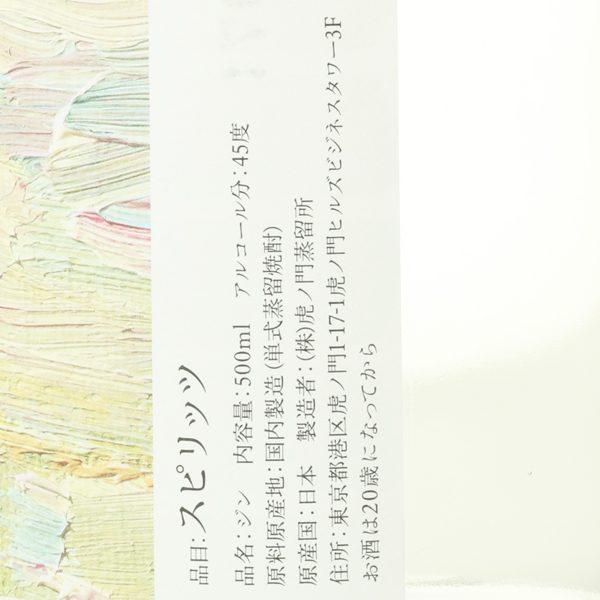 品目:スピリッツ
品名:ジン 内容量:500ml アルコール分:45度
原料原産地:国内製造(単式蒸留焼酎)
原産国:日本 製造者:(株)虎ノ門蒸留所
住所:東京都港区虎ノ門1-17-1虎ノ門ヒルズビジネスタワー3F
お酒は20歳になってから